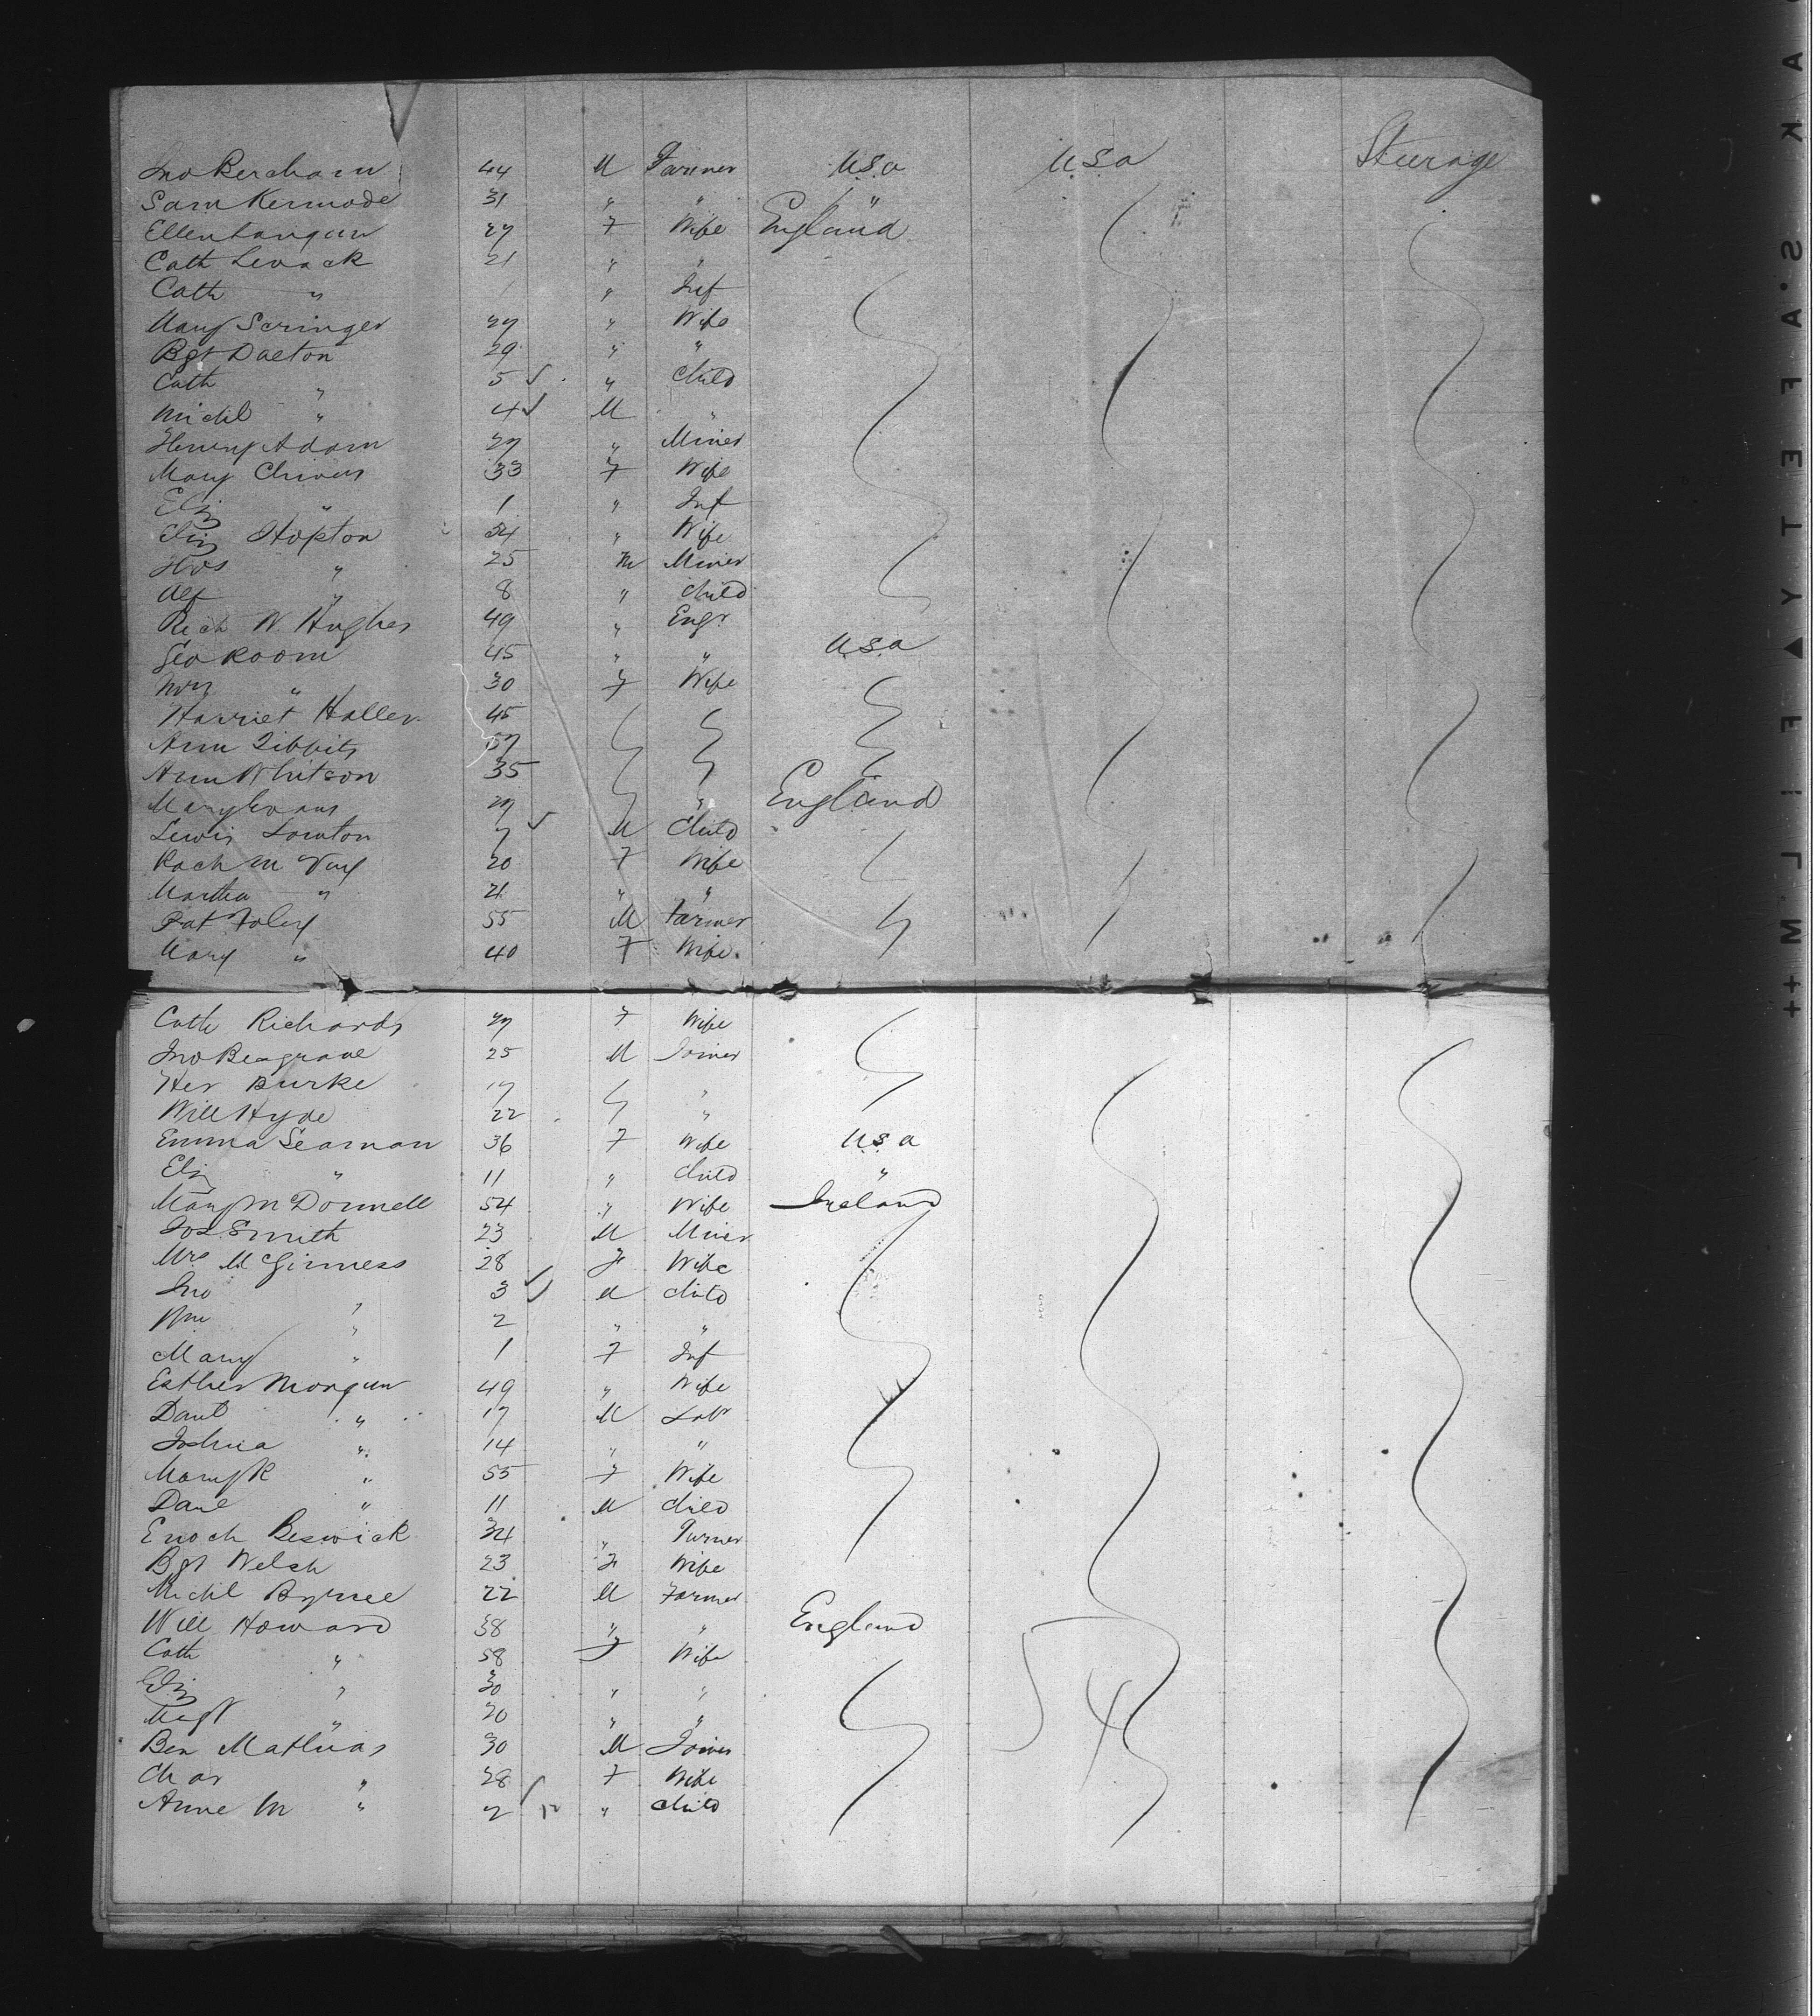 Jno Kercham 44 M Farmer U.S.a U.S.a Steerage
Sam Kermode 31 " " "
Ellen Langan 27 F Wife England
Cath Levack 21 " "
Cath " " Inf
Mary Scringer 27 " Wife
Bgt Dalton 29 " "
Cath " 5 ✓ " Child
Michl " 4 ✓ M "
Henry Adam 27 " Miner
Mary Chivers 33 F Wife
Eliz " 1 " Inf
Eliz Hopton 24 " Wife
Thos " 25 M Miner
Alf " 8 " Child
Rich W Hughes 49 " Engr
Geo Room 45 " " U.S.a
Mrs " 30 F Wife
Harriet Haller 45
Ann Tibbits 57
Ann Whitson 35
Mary Evans 27 " England
Lewis Lowton 7 ✓ M Child
Rach M 20 F Wife
Martha " 21 " "
Pat Foley 55 M Farmer
Mary " 40 F Wife
Cath Richards 27 F Wife
Jno Beagrave 25 M Joiner
Her Burke 17 "
Will Hyde 22 "
Emma Seaman 36 F Wife U.S.a
Eliz " 11 " Child "
Mary McDonnell 54 " Wife Ireland
Jos Smith 23 M Miner
Mrs McGinness 28 F Wife
Jno " 3 ✓ M Child
Wm " 2 " "
Mary " 1 F Inf
Esther Morgan 49 " Wife
Danl " 17 M Labr
Joshua " 14 " "
Mary R " 55 F Wife
Danl " 11 M Child
Enoch Beswick 34 " Turner
Bgt Welsh 23 F Wife
Michl Byrne 22 M Farmer
Will Howard 38 " " England
Cath " 58 F Wife
Eliz " 30 " "
Magt " 20 " "
Ben Mathias 30 M Joiner 54
Char " 28 F Wife
Anne M " 2 ✓ 12 " Child
A K A S.A FA E T Y F I L M ++